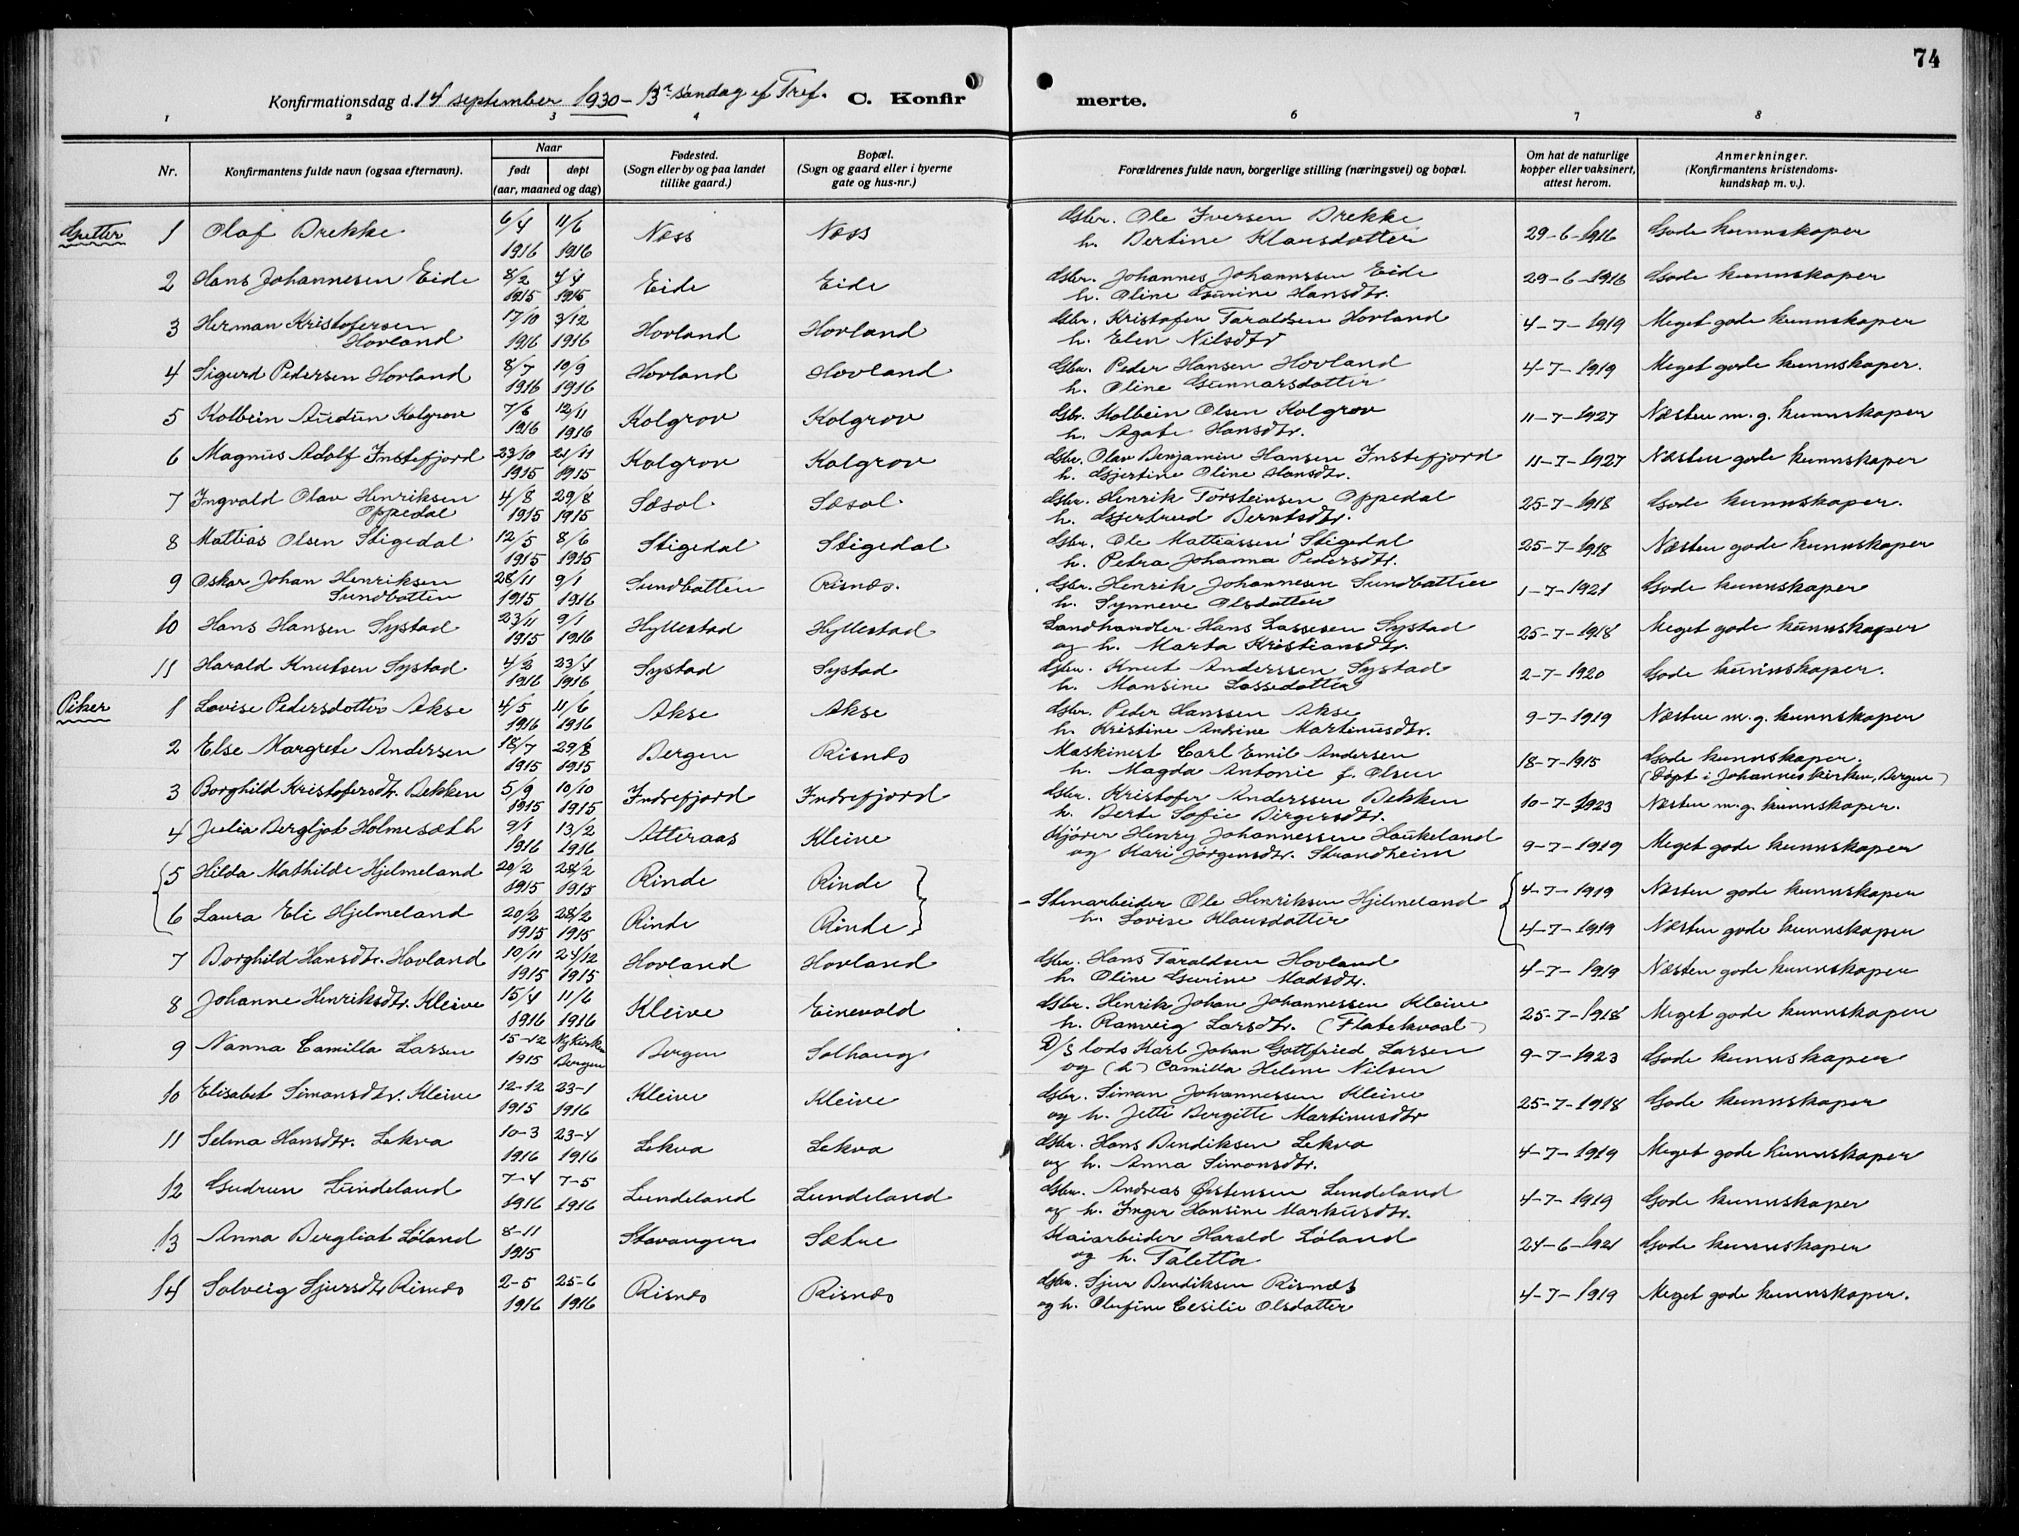 74
Konfirmationsdag d. 14 september 1930 – 13de søndag ef Tref. C. Konfirmerte.
1 2 3 4 6 7 8
Nr. Konfirmantens fulde navn (ogsaa efternavn). Naar født døpt (aar, maaned og dag) Fødested. (Sogn eller by og paa landet tillike gaard.) Bopæl. (Sogn og gaard eller i byerne gate og hus-nr.) Forældrenes fulde navn, borgerlige stilling (næringsvei) og bopæl. Om hat de naturlige kopper eller vaksinert, attest herom. Anmerkninger. (Konfirmantens kristendomskundskap m. v.).
Gutter 1 Olaf Brekke 6/4 1916 11/6 1916 Næss Næss Gbr. Ole Iversen Brekke h. Bertine Klausdotter 29-6-1916 Gode kunnskaper
2 Hans Johannesen Eide 8/2 1915 4/4 1915 Eide Eide Gbr. Johannes Johannssen Eide h. Oline Gurine Hansdtr. 29-6-1916 Gode kunnskaper
3 Herman Kristofersen Hovland 17/10 1916 3/12 1916 Hovland Hovland Gbr. Kristofer Taraldsen Hovland h. Elen Nilsdtr 4-7-1919 Meget gode kunnskaper
4 Sigurd Pedersen Hovland 8/7 1916 10/9 1916 Hovland Hovland Gbr. Peder Hansen Hovland h. Oline Gunnarsdotter 4-7-1919 Meget gode kunnskaper.
5 Kolbein Audun Kolgrov 7/6 1916 12/11 1916 Kolgrov Kolgrov Gbr. Kolbein Olsen Kolgrov h. Agate Hansdtr. 11-7-1927 Næsten m. g. kunnskaper
6 Magnus Adolf Instefjord 23/10 1915 21/11 1915 Kolgrov Kolgrov Gbr. Olav Benjamin Hansen Instefjord h. Gjertine Oline Hansdtr. 11-7-1927 Næsten gode kunnskaper
7 Ingvald Olav Henriksen Oppedal 4/8 1915 29/8 1915 Sæsol Sæsol Gbr. Henrik Torsteinsen Oppedal h. Gjertrud Berntsdtr. 25-7-1918 Gode kunnskaper.
8 Mattias Olsen Stigedal 12/5 1915 8/6 1915 Stigedal Stigedal Gbr. Ole Mattiassen Stigedal h. Petra Johanna Pedersdtr. 25-7-1918 Næsten gode kunnskaper
9 Oskar Johan Henriksen Sundbotten 28/11 1915 9/1 1916 Sundbotten Risnes. Gbr. Henrik Johannesen Sundbotten h. Synneve Olsdotter 1-7-1921 Gode kunnskaper
10 Hans Hansen Systad 23/11 1915 9/1 1916 Hyllestad Hyllestad Landhandler Hans Lassesen Systad og h. Marta Kristiansdtr. 25-7-1918 Meget gode kunnskaper
11 Harald Knutsen Systad 4/2 1916 23/4 1916 Systad Systad Gbr. Knut Anderssen Systad h. Monsine Lassedotter 2-7-1920 Gode kunnskaper.
Piker 1 Lovise Pedersdotter Akse 4/5 1916 11/6 1916 Akse Akse Gbr. Peder Hanssen Akse h. Kristine Andrine Martinusdtr. 9-7-1919 Næsten m. g. kunnskaper
2 Else Margrete Andersen 18/7 1915 29/8 1915 Bergen Risnes Maskinest Carl Emil Andersen h. Magda Antonie f. Olsen 18-7-1915 Gode kunnskaper. (Døpt i Johanneskirken, Bergen)
3 Borghild Kristofersdtr. Bekken 5/9 1915 10/10 1915 Indrefjord Indrefjord Gbr. Kristofer Anderssen Bekken h. Berte Sofie Birgersdtr. 10-7-1923 Næsten m. g. kunnskaper.
4 Julia Bergljot Holmesæth 9/1 1916 13/2 1916 Atteraas Kleive Kjører Henry Johannessen Haukeland og Kari Jørgensdtr. Strandheim 9-7-1919 Meget gode kunnskaper
5 Hilda Mathilde Hjelmeland 20/2 1915 28/2 1915 Rinde Rinde Stenarbeider Ole Henriksen Hjelmeland h. Lovise Klausdotter 4-7-1919 Næsten gode kunnskaper
6 Laura Eli Hjelmeland 20/2 1915 28/2 1915 Rinde Rinde 4-7-1919 Næsten gode kunnskaper
7 Borghild Hansdtr. Hovland 10/11 1915 24/12 1915 Hovland Hovland Gbr. Hans Taraldsen Hovland h. Oline Gurine Madsdtr. 4-7-1919 Næsten gode kunnskaper
8 Johanne Henriksdtr. Kleive 15/4 1916 11/6 1916 Kleive Einevold Gbr. Henrik Johan Johannessen Kleive h. Ranveig Larsdtr. (Flatekvaal) 25-7-1918 Meget gode kunnskaper
9 Nanna Camilla Larsen 15-12 1915 Nykirken Bergen Bergen Solhaug D/S lods Karl Johan Gottfried Larsen og (h) Camilla Helene Nilsen 9-7-1923 Gode kunnskaper
10 Elisabet Simonsdtr. Kleive 12-12 1915 23-1 1916 Kleive Kleive Gbr. Simon Johannessen Kleive og h. Jette Bergitte Martinusdtr 25-7-1918 Gode kunnskaper
11 Selma Hansdtr. Lekva 10-3 1916 23-4 1916 Lekva Lekva Gbr. Hans Bendiksen Lekva og h. Anna Simonsdtr. 4-7-1919 Meget gode kunnskaper
12 Gudrun Lundeland 7-4 1916 7-5 1916 Lundeland Lundeland Gbr. Andreas Østensen Lundeland og h. Inger Hansine Markusdtr. 4-7-1919 Gode kunnskaper
13 Anna Bergliot Löland 8-11 1915 Stavanger Sætre Kaiarbeider Harald Löland og h. Taletta 24-6-1921 Gode kunnskaper
14 Solveig Sjursdtr Risnes 2-5 1916 25-6 1916 Risnes Risnes Gbr. Sjur Bendiksen Risnes og h. Olufine Cesilie Olsdotter 4-7-1919 Meget gode kunnskaper.